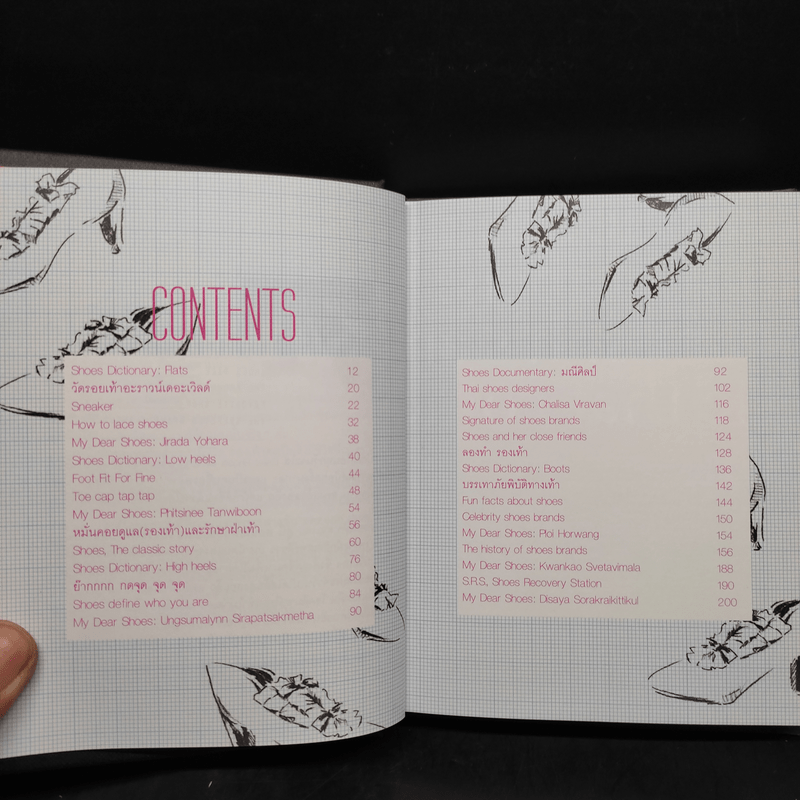 CONTENTS
Shoes Dictionary: Flats 12
วัดรอยเท้าอะราวน์เดอะเวิลด์ 20
Sneaker 22
How to lace shoes 32
My Dear Shoes: Jirada Yohara 38
Shoes Dictionary: Low heels 40
Foot Fit For Fine 44
Toe cap tap tap 48
My Dear Shoes: Phitsinee Tanwiboon 54
หมั่นคอยดูแล(รองเท้า)และรักษาฝ่าเท้า 56
Shoes, The classic story 60
Shoes Dictionary: High heels 76
ย๊ากกกก กดจุด จุด จุด 80
Shoes define who you are 84
My Dear Shoes: Ungsumalynn Sirapatsakmetha 90
Shoes Documentary: มณีศิลป์ 92
Thai shoes designers 102
My Dear Shoes: Chalisa Viravan 116
Signature of shoes brands 118
Shoes and her close friends 124
ลองทำ รองเท้า 128
Shoes Dictionary: Boots 136
บรรเทาภัยพิบัติทางเท้า 142
Fun facts about shoes 144
Celebrity shoes brands 150
My Dear Shoes: Ploi Horwang 154
The history of shoes brands 156
My Dear Shoes: Kwankao Svetavimala 188
S.R.S. Shoes Recovery Station 190
My Dear Shoes: Disaya Sorakraikittikul 200